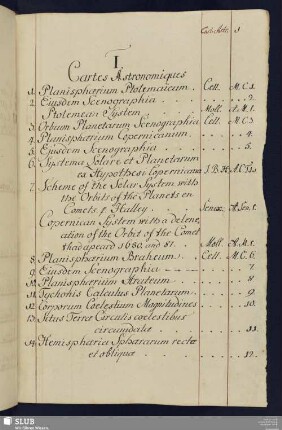 I.
Cartes Astronomiques
1. Planisphærium Ptolemaicum. Cell. M.C.1.
2. Ejusdem Scenographia 2.
Ptolemean System Moll. A.M.1.
3. Orbium Planetarum Scenographia Cell. M.C.3.
4. Planisphærium Copernicanum. 4.
5. Ejusdem Scenographia 5.
6. Systema Solare et Planetarum
ex Hypothesi Copernicana I.B.H.
7. Scheme of the Solar System with
the Orbits of the Planets en
Comets, p. Halley. Senex. A.Sen.1.
Copernican System with a deline-
ation of the Orbit of the Comet
that apeard 1680 and 81. Moll. A.M.1.
8. Planisphærium Braheum. Cell. M.C.6.
9. Ejusdem Scenographia 7.
10. Planisphærium Arateum 8.
11. Tychonis Calculus Planetarum. 9.
12. Corporum Coelestium Magnitudines 10.
13. Situs Terræ Circulis coelestibus
circumdatæ 11.
14. Hemisphæria Sphærarum rectæ
et obliquæ 12.
SLUB